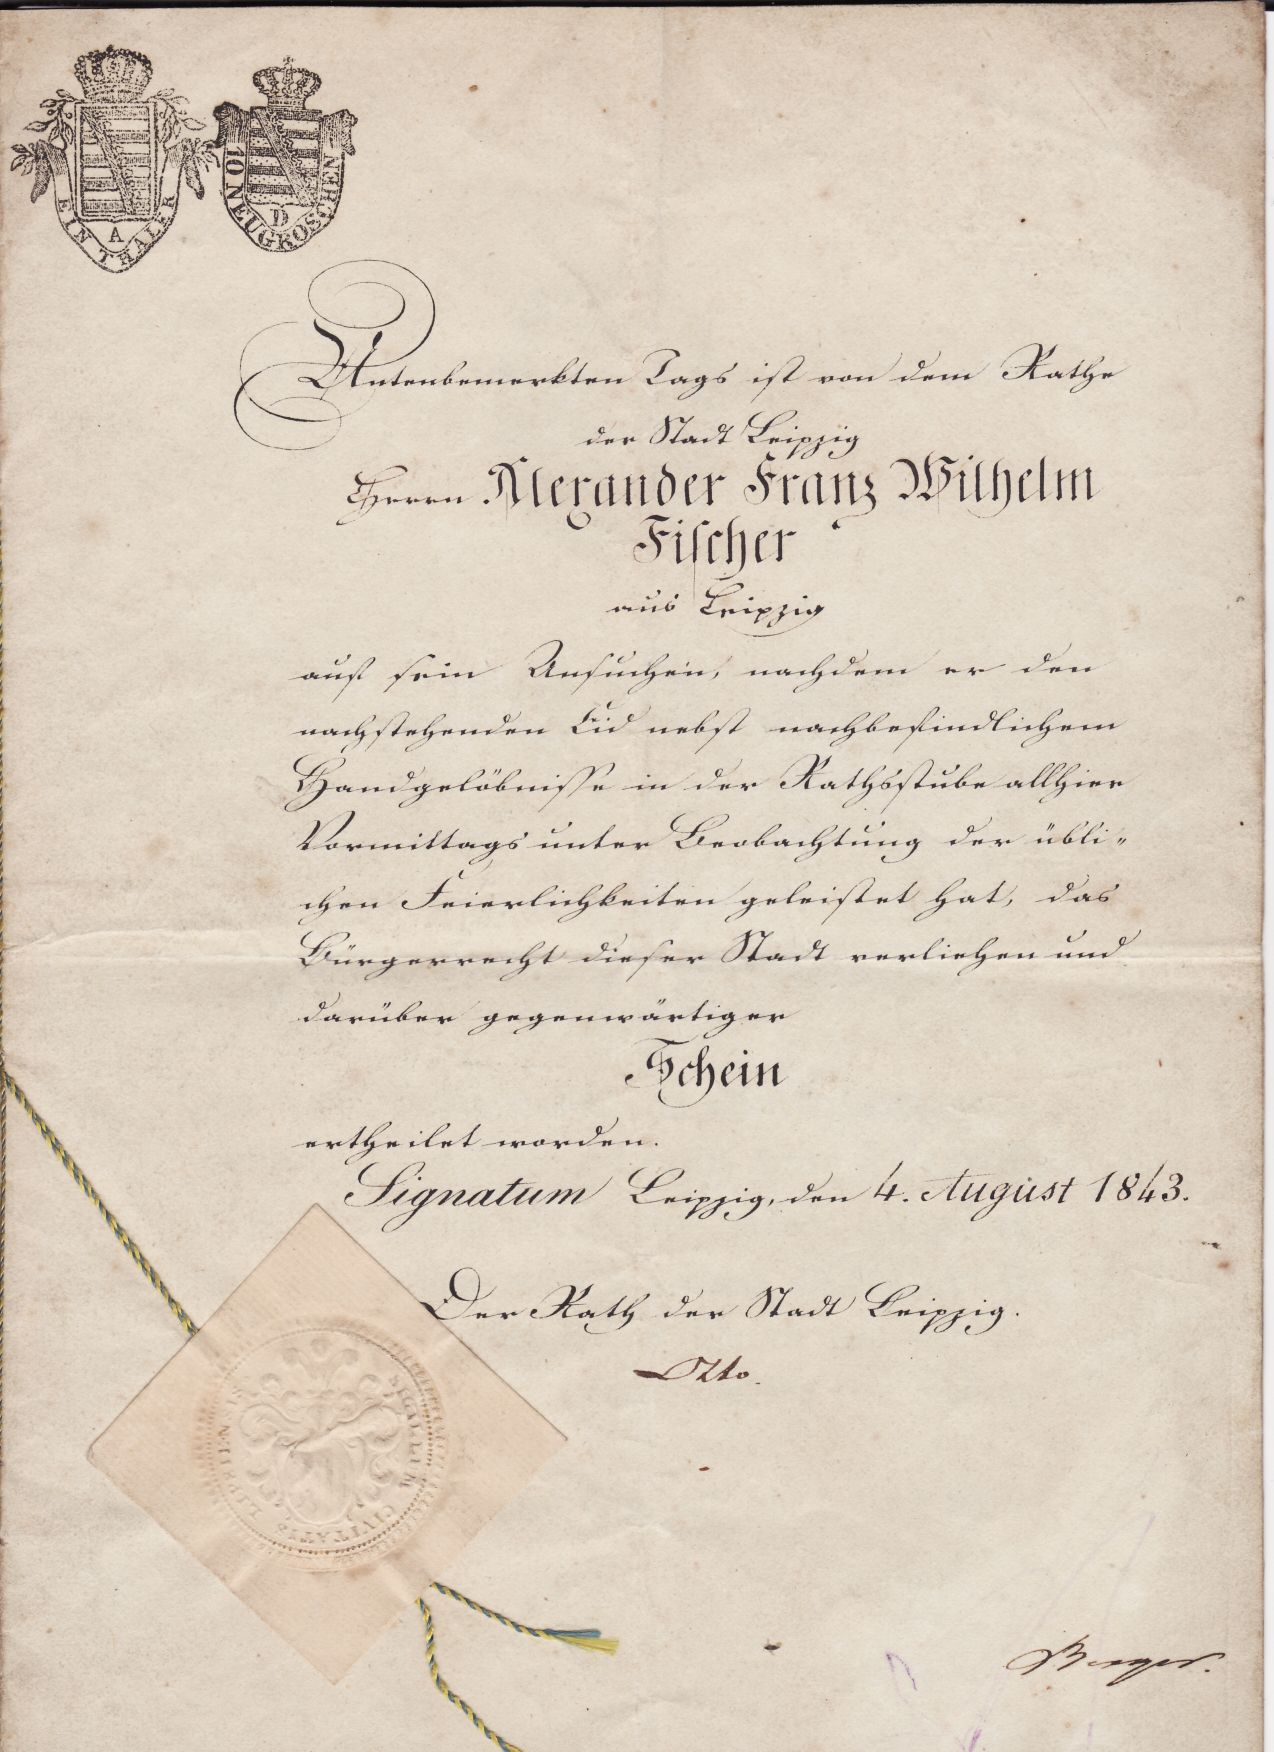 EIN THALER
A
10 NEUGROSCHEN
D
Untenbemerkten Tags ist von dem Rathe
der Stadt Leipzig
Herrn Alexander Franz Wilhelm
Fischer
aus Leipzig
auf sein Ansuchen, nachdem er den
nachstehenden Eid nebst nachbefindlichem
Handgelöbnisse in der Rathsstube allhier
Vormittags unter Beobachtung der übli-
chen Feierlichkeiten geleistet hat, das
Bürgerrecht dieser Stadt verliehen und
darüber gegenwärtiger
Schein
ertheilet worden.
Signatum Leipzig, den 4. August 1843.
Der Rath der Stadt Leipzig.
Otto.
SIGILLUM CIVITATIS
Berger.